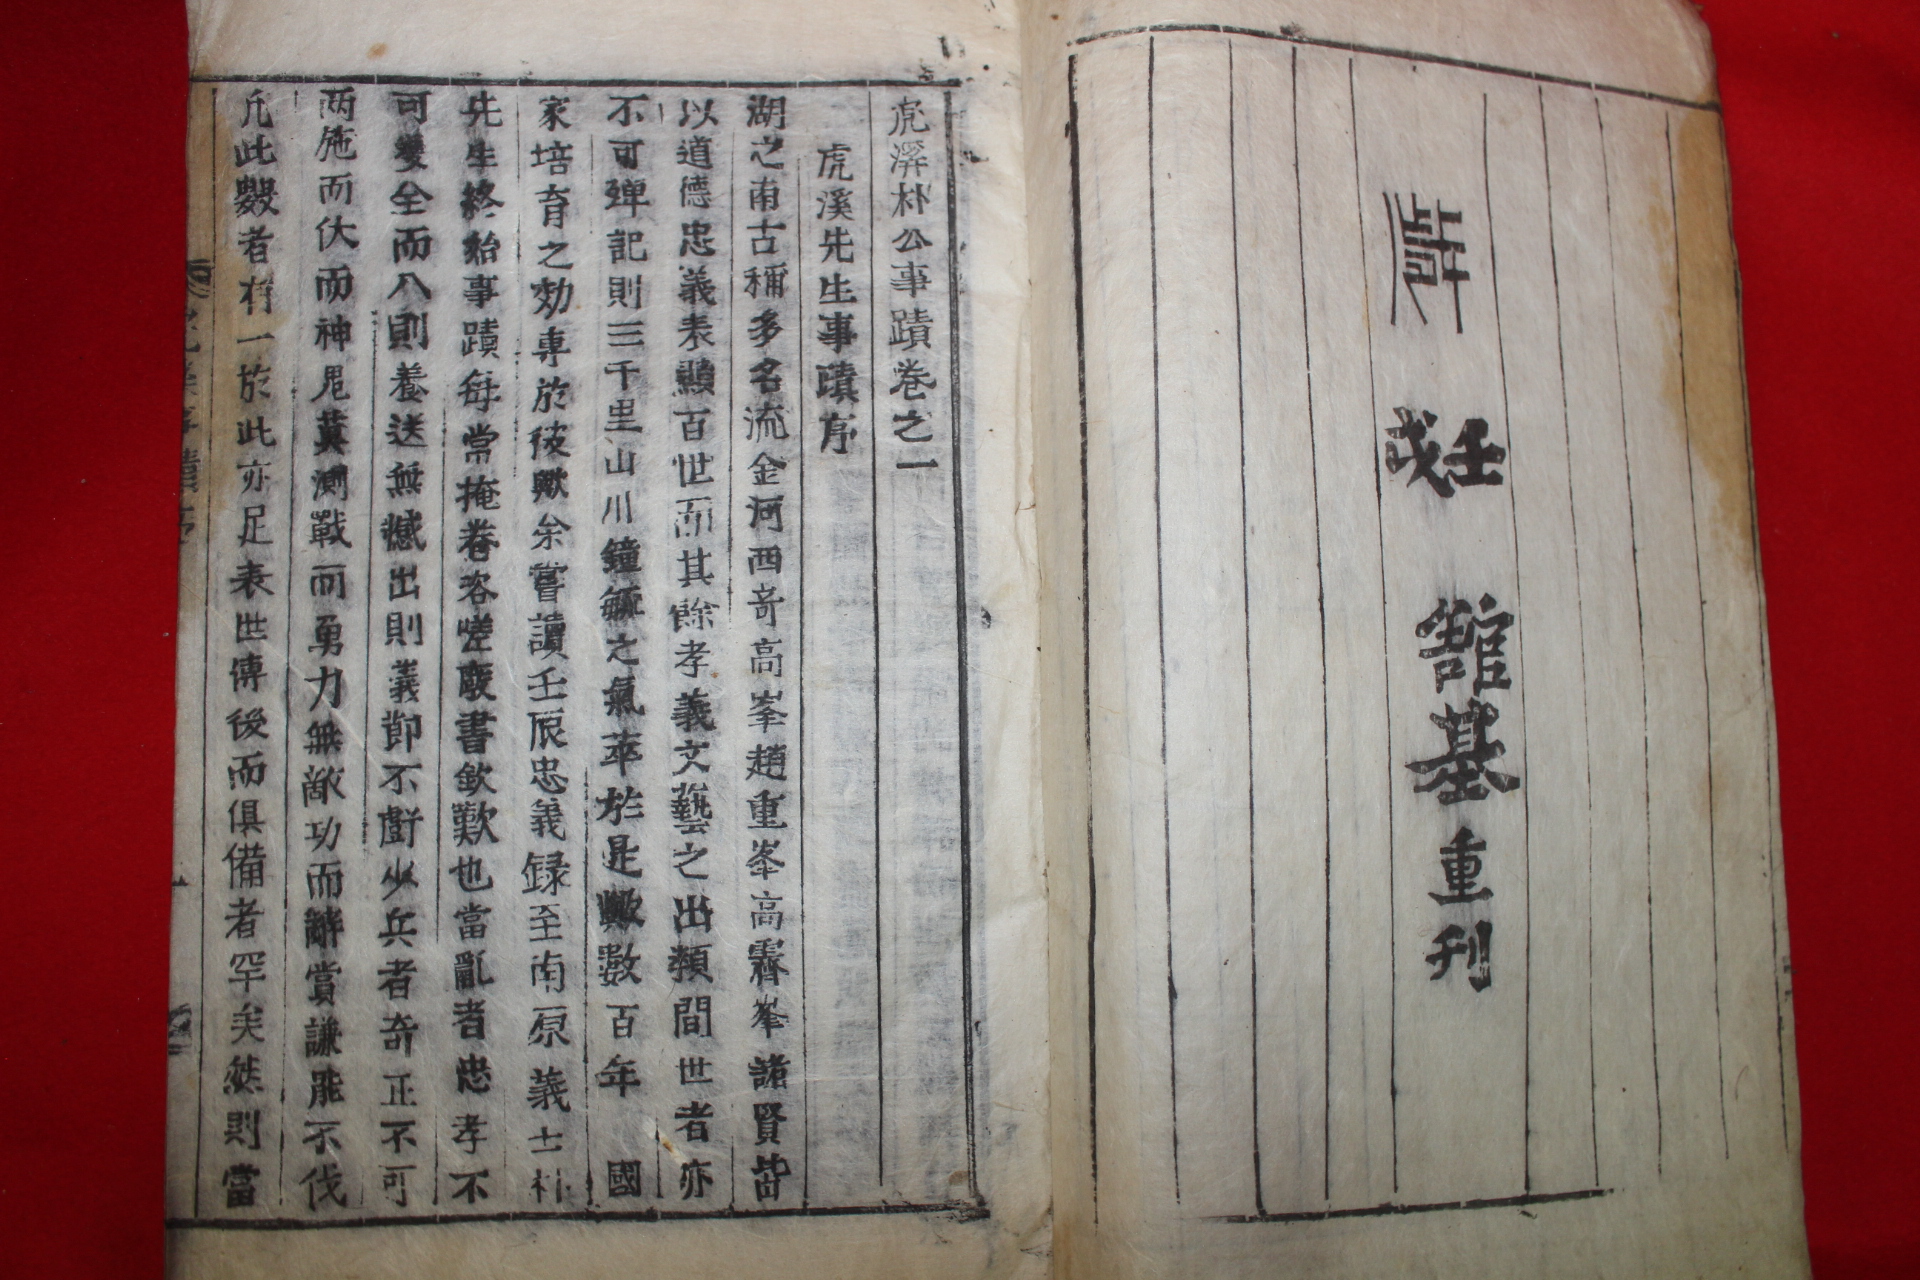 歲
壬戌
舘基重刊
虎溪朴公事蹟卷之一
虎溪先生事蹟序
湖之南古稱多名流金河西奇高峯趙重峯高霽峯諸賢皆
以道德忠義表顯百世而其餘孝義文藝之出類間世者亦
不可殫記則三千里山川鍾毓之氣萃於是歟數百年 國
家培育之効專於彼歟余嘗讀壬辰忠義録至南原義士朴
先生終始事蹟每當掩卷咨嗟廢書欽歎也當亂者忠孝不
可雙全而入則養送無憾出則義節不虧少兵者奇正不可
两施而仗而神鬼莫測戰而勇力無敵功而辭賞謙能不伐
凡此數者有一於此亦足表世傳後而俱備者罕矣然則當